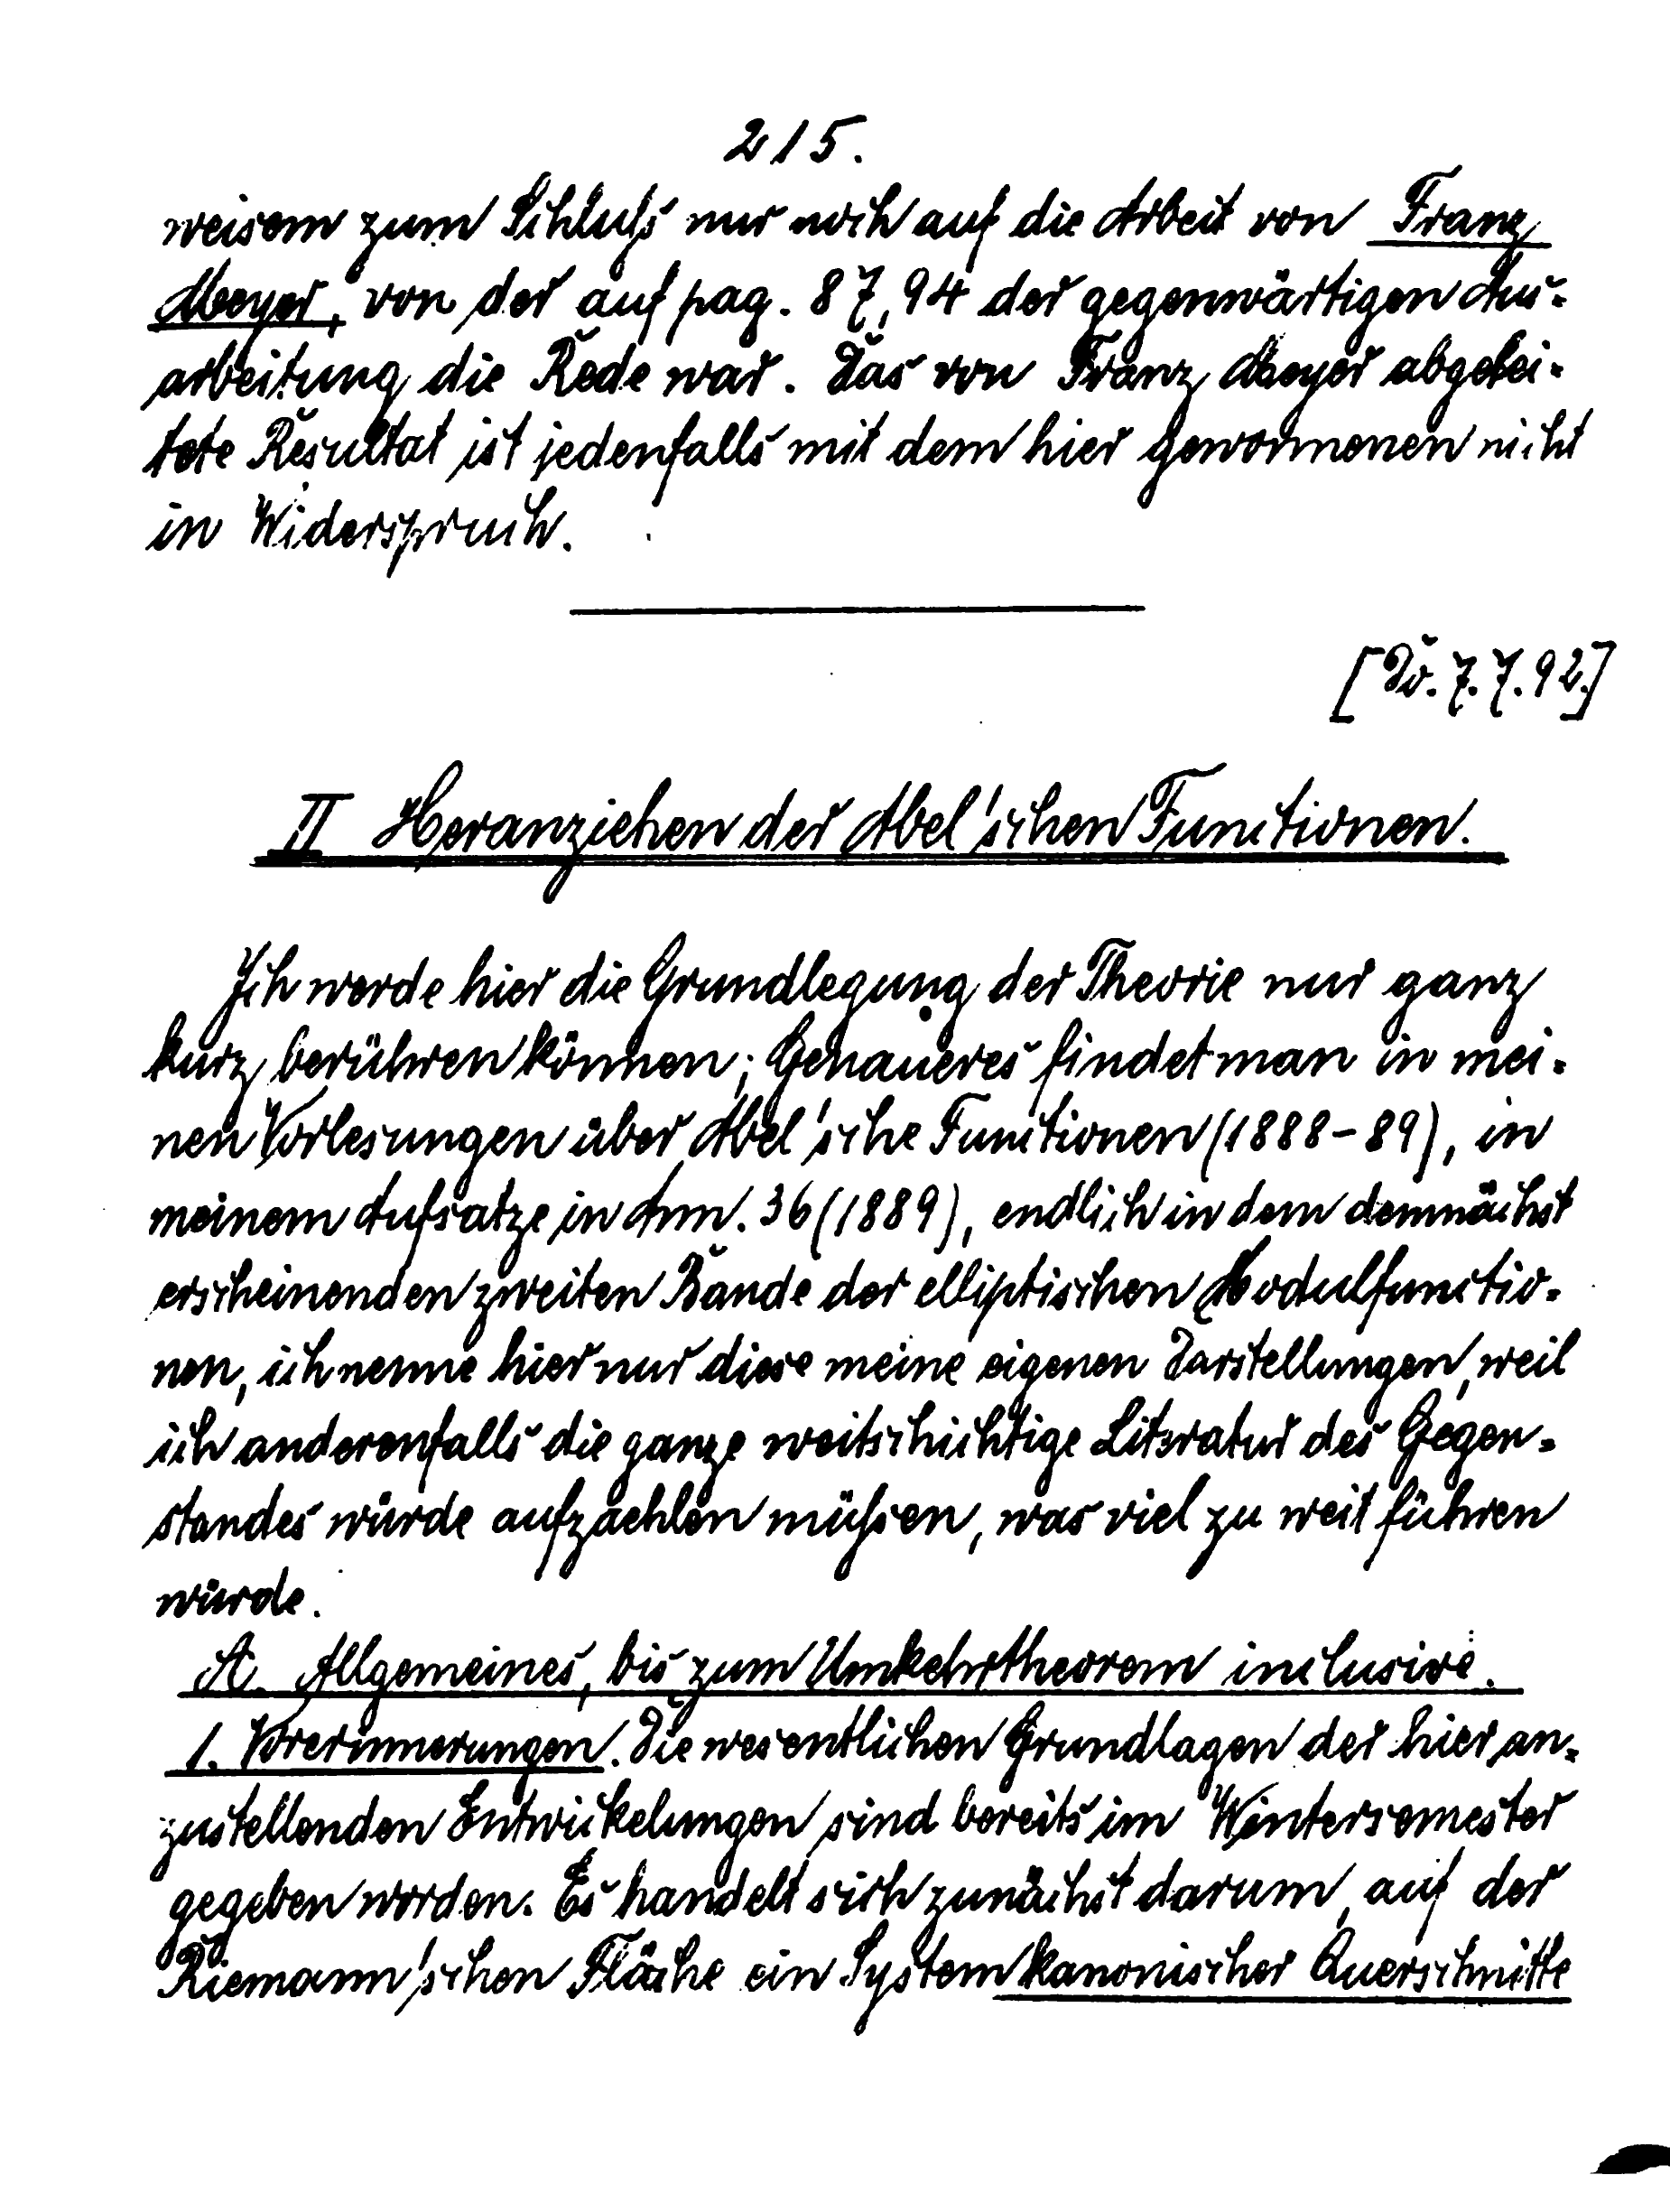 215.
weisen zum Schluſs nur noch auf die Arbeit von Franz
Meyer, von der auf pag. 87, 94 der gegenwärtigen Aus-
arbeitung die Rede war. Das von Franz Meyer abgelei-
tete Resultat ist jedenfalls mit dem hier gewonnenen nicht
in Widerspruch.
[Do. 7. 7. 92.]
II Heranziehen der Abel'schen Functionen.
Ich werde hier die Grundlegung der Theorie nur ganz
kurz berühren können; Genaueres findet man in mei-
nen Vorlesungen über Abel'sche Functionen (1888-89), in
meinem Aufsatze in Ann. 36 (1889), endlich in dem demnächst
erscheinenden zweiten Bande der elliptischen Modulfunctio-
nen, ich nenne hier nur diese meine eigenen Darstellungen, weil
ich anderenfalls die ganze weitschichtige Literatur des Gegen-
standes würde aufzaehlen müſsen, was viel zu weit führen
würde.
A. Allgemeines, bis zum Umkehrtheorem inclusive.
1. Vorerinnerungen. Die wesentlichen Grundlagen der hier an-
zustellenden Entwickelungen sind bereits im Wintersemester
gegeben worden. Es handelt sich zunächst darum, auf der
Riemann'schen Fläche ein System kanonischer Querschnitte